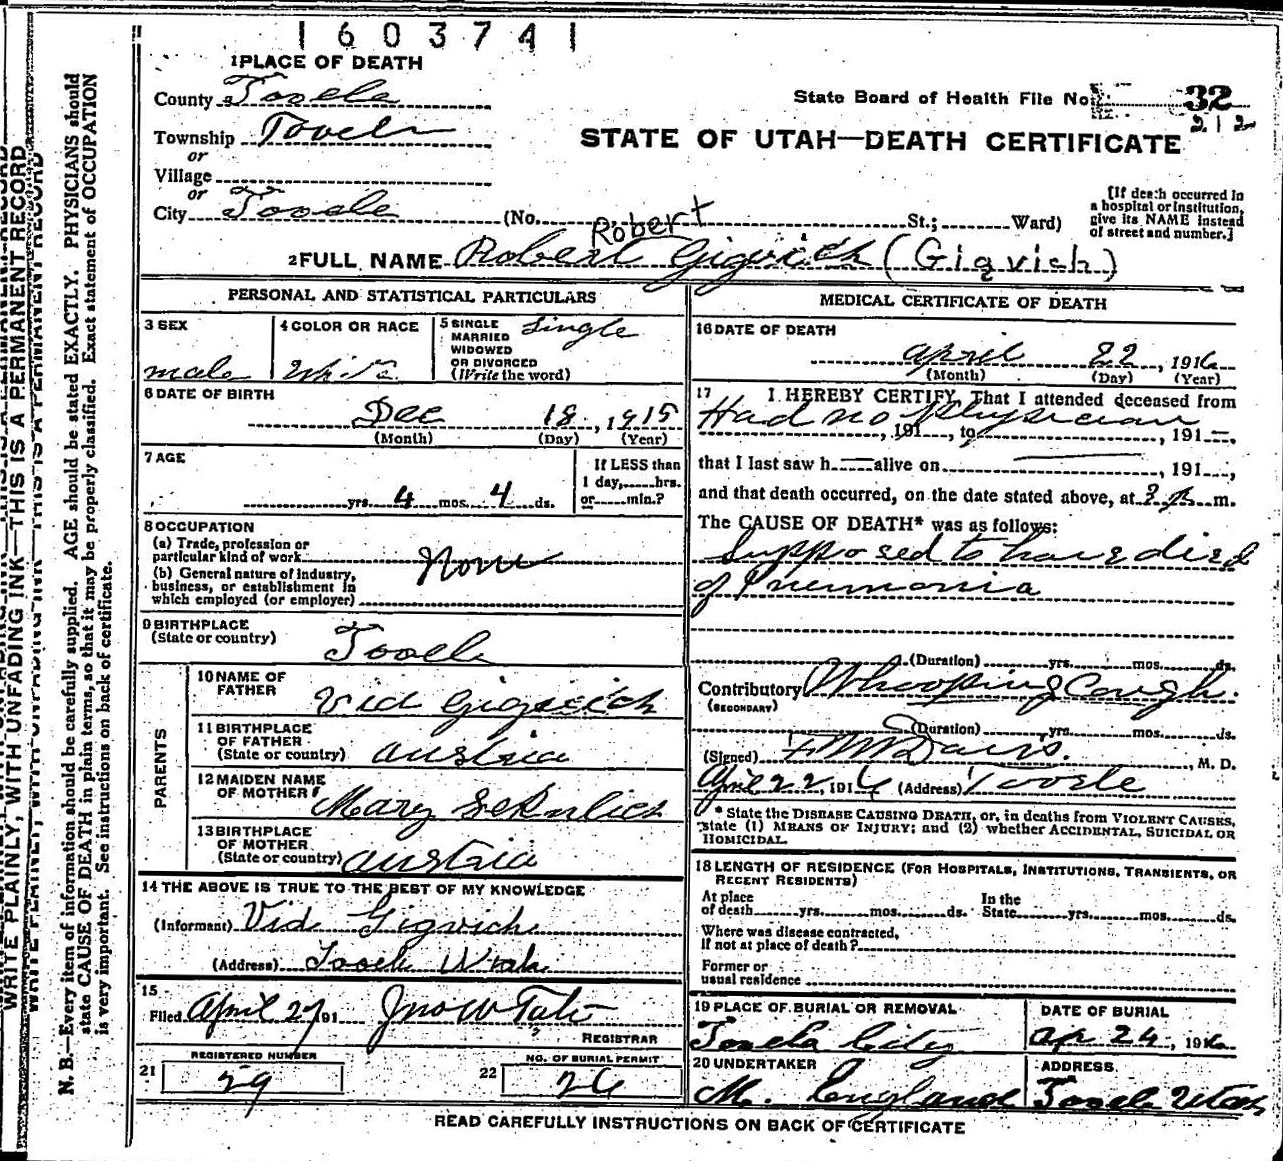 1603741
1 PLACE OF DEATH
County Tooele
State Board of Health File No. 32
212
Township Tooele
or
Village
or
City Tooele (No. St.; Ward)
STATE OF UTAH—DEATH CERTIFICATE
[If death occurred in
a hospital or institution,
give its NAME instead
of street and number.]
Robert
2 FULL NAME Robert Gigvich (Gigvich)
PERSONAL AND STATISTICAL PARTICULARS
3 SEX
male
4 COLOR OR RACE
White
5 SINGLE
MARRIED
WIDOWED
OR DIVORCED
(Write the word)
Single
6 DATE OF BIRTH
Dec 18, 1915
(Month) (Day) (Year)
7 AGE
yrs. 4 mos. 4 ds.
If LESS than
1 day, hrs.
or min.?
8 OCCUPATION
(a) Trade, profession or
particular kind of work None
(b) General nature of industry,
business, or establishment in
which employed (or employer)
9 BIRTHPLACE
(State or country) Tooele
PARENTS
10 NAME OF
FATHER Vid Gigvich
11 BIRTHPLACE
OF FATHER
(State or country) Austria
12 MAIDEN NAME
OF MOTHER Mary
13 BIRTHPLACE
OF MOTHER
(State or country) Austria
14 THE ABOVE IS TRUE TO THE BEST OF MY KNOWLEDGE
(Informant) Vid Gigvich
(Address) Tooele Utah
15
Filed April 27 191 Jno W Tate
REGISTRAR
REGISTERED NUMBER
21 29
NO. OF BURIAL PERMIT
22 26
MEDICAL CERTIFICATE OF DEATH
16 DATE OF DEATH
April 22, 1916
(Month) (Day) (Year)
17 I HEREBY CERTIFY, That I attended deceased from
Had no Physician
, 191 , to , 191 ,
that I last saw h alive on , 191 ,
and that death occurred, on the date stated above, at 3 P. m.
The CAUSE OF DEATH* was as follows:
Supposed to have died
of Pneumonia
(Duration) yrs. mos. ds.
Contributory Whooping Cough.
(SECONDARY)
(Duration) yrs. mos. ds.
(Signed) F M Davis, M. D.
April 22, 1916 (Address) Tooele
* State the DISEASE CAUSING DEATH, or, in deaths from VIOLENT CAUSES,
state (1) MEANS OF INJURY; and (2) whether ACCIDENTAL, SUICIDAL OR
HOMICIDAL.
18 LENGTH OF RESIDENCE (FOR HOSPITALS, INSTITUTIONS, TRANSIENTS, OR
RECENT RESIDENTS)
At place
of death yrs. mos. ds.
In the
State yrs. mos. ds.
Where was disease contracted,
if not at place of death?
Former or
usual residence
19 PLACE OF BURIAL OR REMOVAL
Tooele City
DATE OF BURIAL
Apr 24, 1916
20 UNDERTAKER
M. England
ADDRESS
Tooele Utah
READ CAREFULLY INSTRUCTIONS ON BACK OF CERTIFICATE
WRITE PLAINLY, WITH UNFADING INK—THIS IS A PERMANENT RECORD
N. B.—Every item of information should be carefully supplied. AGE should be stated EXACTLY. PHYSICIANS should
state CAUSE OF DEATH in plain terms, so that it may be properly classified. Exact statement of OCCUPATION
is very important. See instructions on back of certificate.